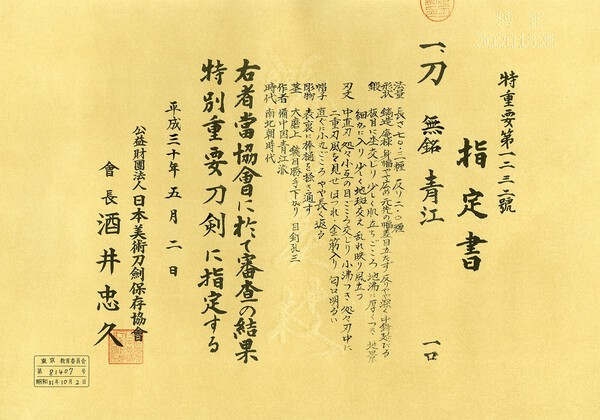 特重要第一二三二號
指定書
一、刀 無銘 青江 一口
法量 長さ七〇・二糎 反り二・〇糎
形状 鎬造 庵棟 身幅やや広め 元先の幅差目立たず 反りやや深く 中鋒延びる
鍛 板目に杢交じり 少しく肌立ちごころ 地沸厚くつき 地景
細かに入り 少しく地斑交え 乱れ映り風立つ
刃文 中直刃 処々小互の目ごころ交じり 小沸つき 処々刃中に
二重刃風を見せ ほつれ・金筋入り 匂口明るい
帽子 直ぐに小丸ごころ やや長く返る
彫物 表裏に棒樋を掻き通す
茎 大磨上 鑢目勝手下がり 目釘孔三
作者 備中国青江派
時代 南北朝時代
右者當協會に於て審査の結果
特別重要刀剣に指定する
平成三十年五月二日
公益財團法人 日本美術刀劍保存協會
會長 酒井忠久
東京 教育委員会
第 81407 号
昭和 31年10月2日